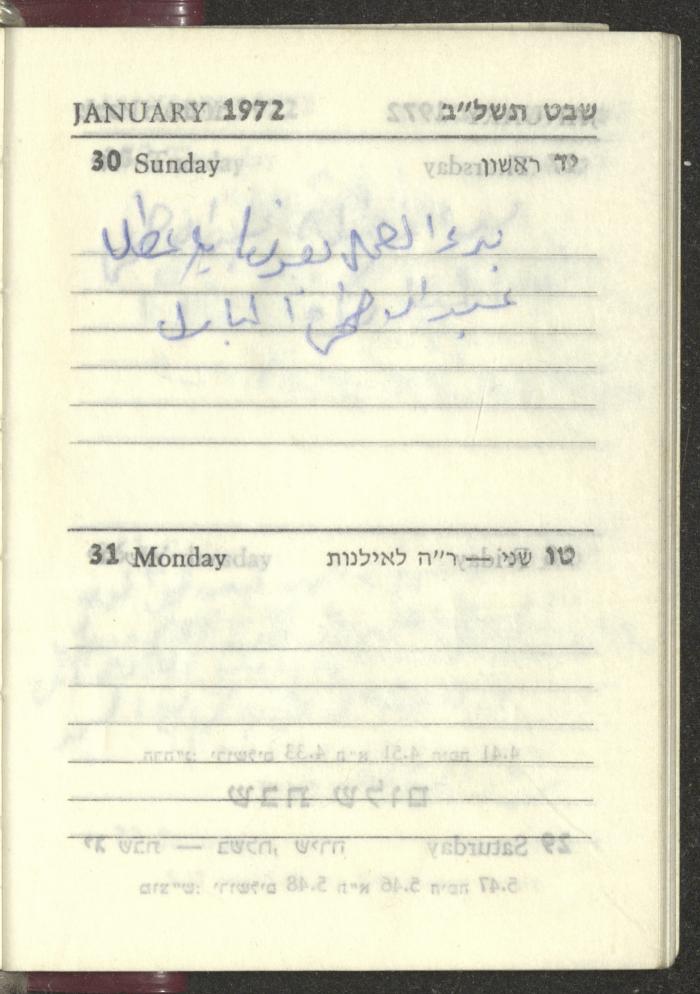 JANUARY 1972 שבט תשל״ב
30 Sunday יד ראשון
بدء العمل بعد
عيد الاضحى المبارك
31 Monday טו שני — ר״ה לאילנות